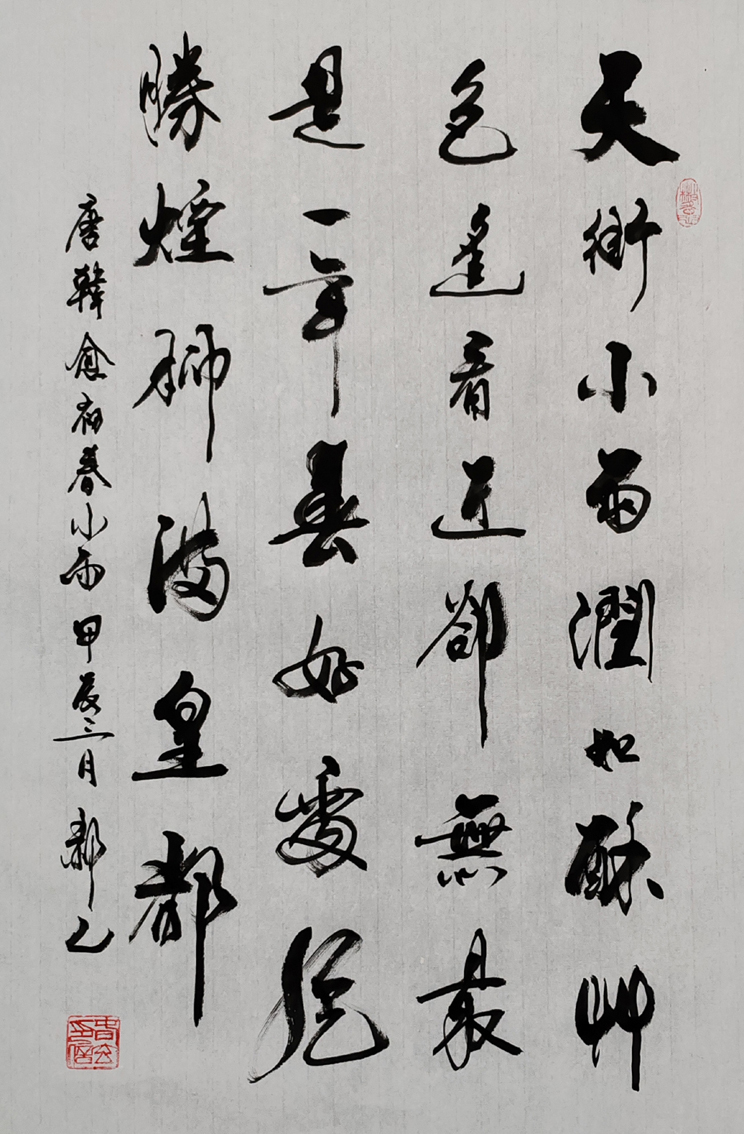 天街小雨潤如酥艸
色遙看近卻無最
是一年春好處絕
勝煙柳滿皇都
唐韓愈初春小雨甲辰三月郝